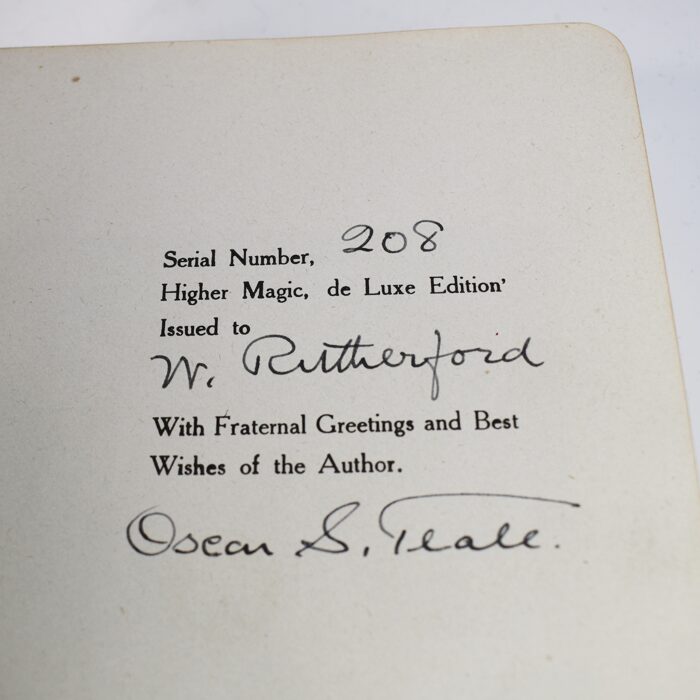 Serial Number, 208
Higher Magic, de Luxe Edition'
Issued to
W. Rutherford
With Fraternal Greetings and Best
Wishes of the Author.
Oscar S. Teale.